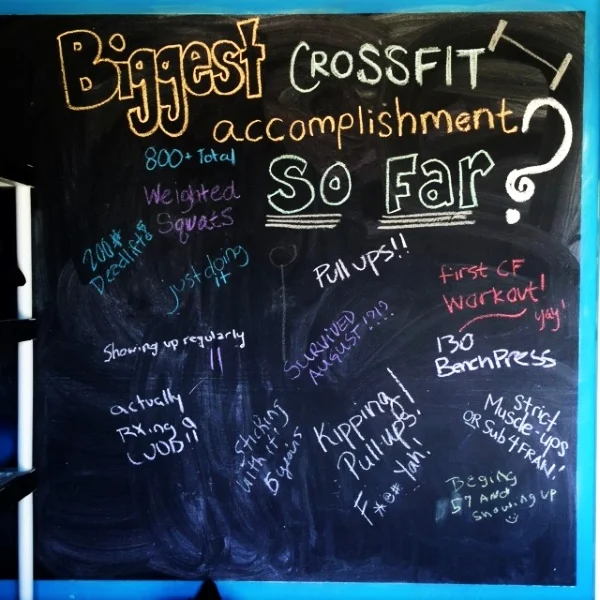 Biggest CROSSFIT
accomplishment
So Far?
800+ Total
Weighted
Squats
200#
Deadlifts
just doing
it
Pull ups!!
first CF
Workout!
yay!
Showing up regularly
SURVIVED
AUGUST
130
BenchPress
actually
RXing a
WOD!!
Sticking
with it
5 years
Kipping
Pullups!
F*@# Yah!
Strict
Muscle-ups
OR Sub 4 FRAN!
Being
57 And
Showing up